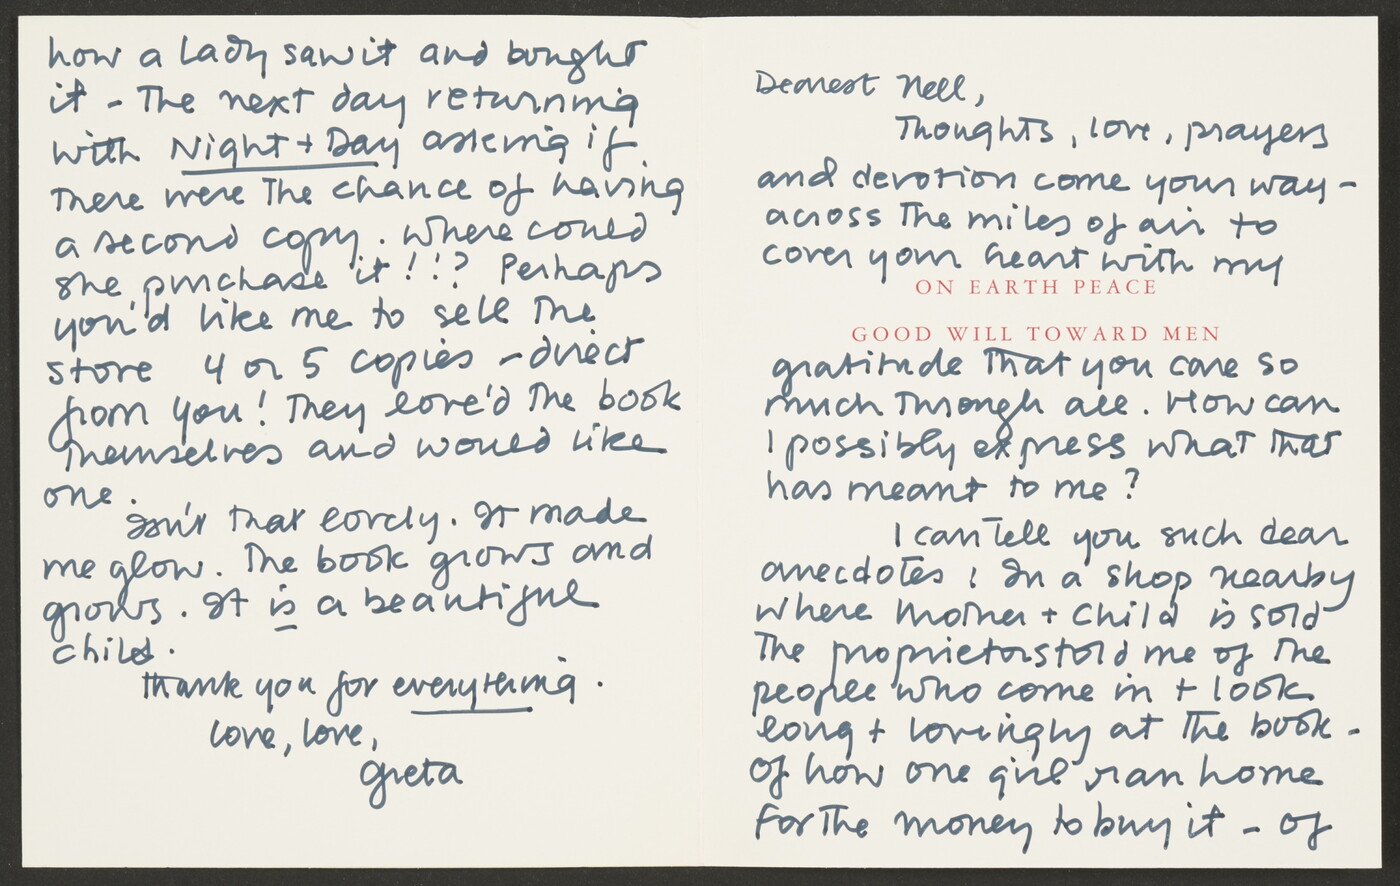 Dearest Nell,
Thoughts, love, prayers
and devotion come your way -
across the miles of air to
cover your heart with my
ON EARTH PEACE
GOOD WILL TOWARD MEN
gratitude that you care so
much through all. How can
I possibly express what that
has meant to me?
I can tell you such dear
anecdotes! In a shop nearby
where Mother + Child is sold
the proprietors told me of the
people who come in + look
long + lovingly at the book -
of how one girl ran home
for the money to buy it - of
how a lady saw it and bought
it - The next day returning
with Night + Day asking if
there were the chance of having
a second copy. Where could
she purchase it!!? Perhaps
you'd like me to sell the
store 4 or 5 copies - direct
from you! They love'd the book
themselves and would like
one.
Isn't that lovely. It made
me glow. The book grows and
grows. It is a beautiful
child.
Thank you for everything.
Love, love,
Greta